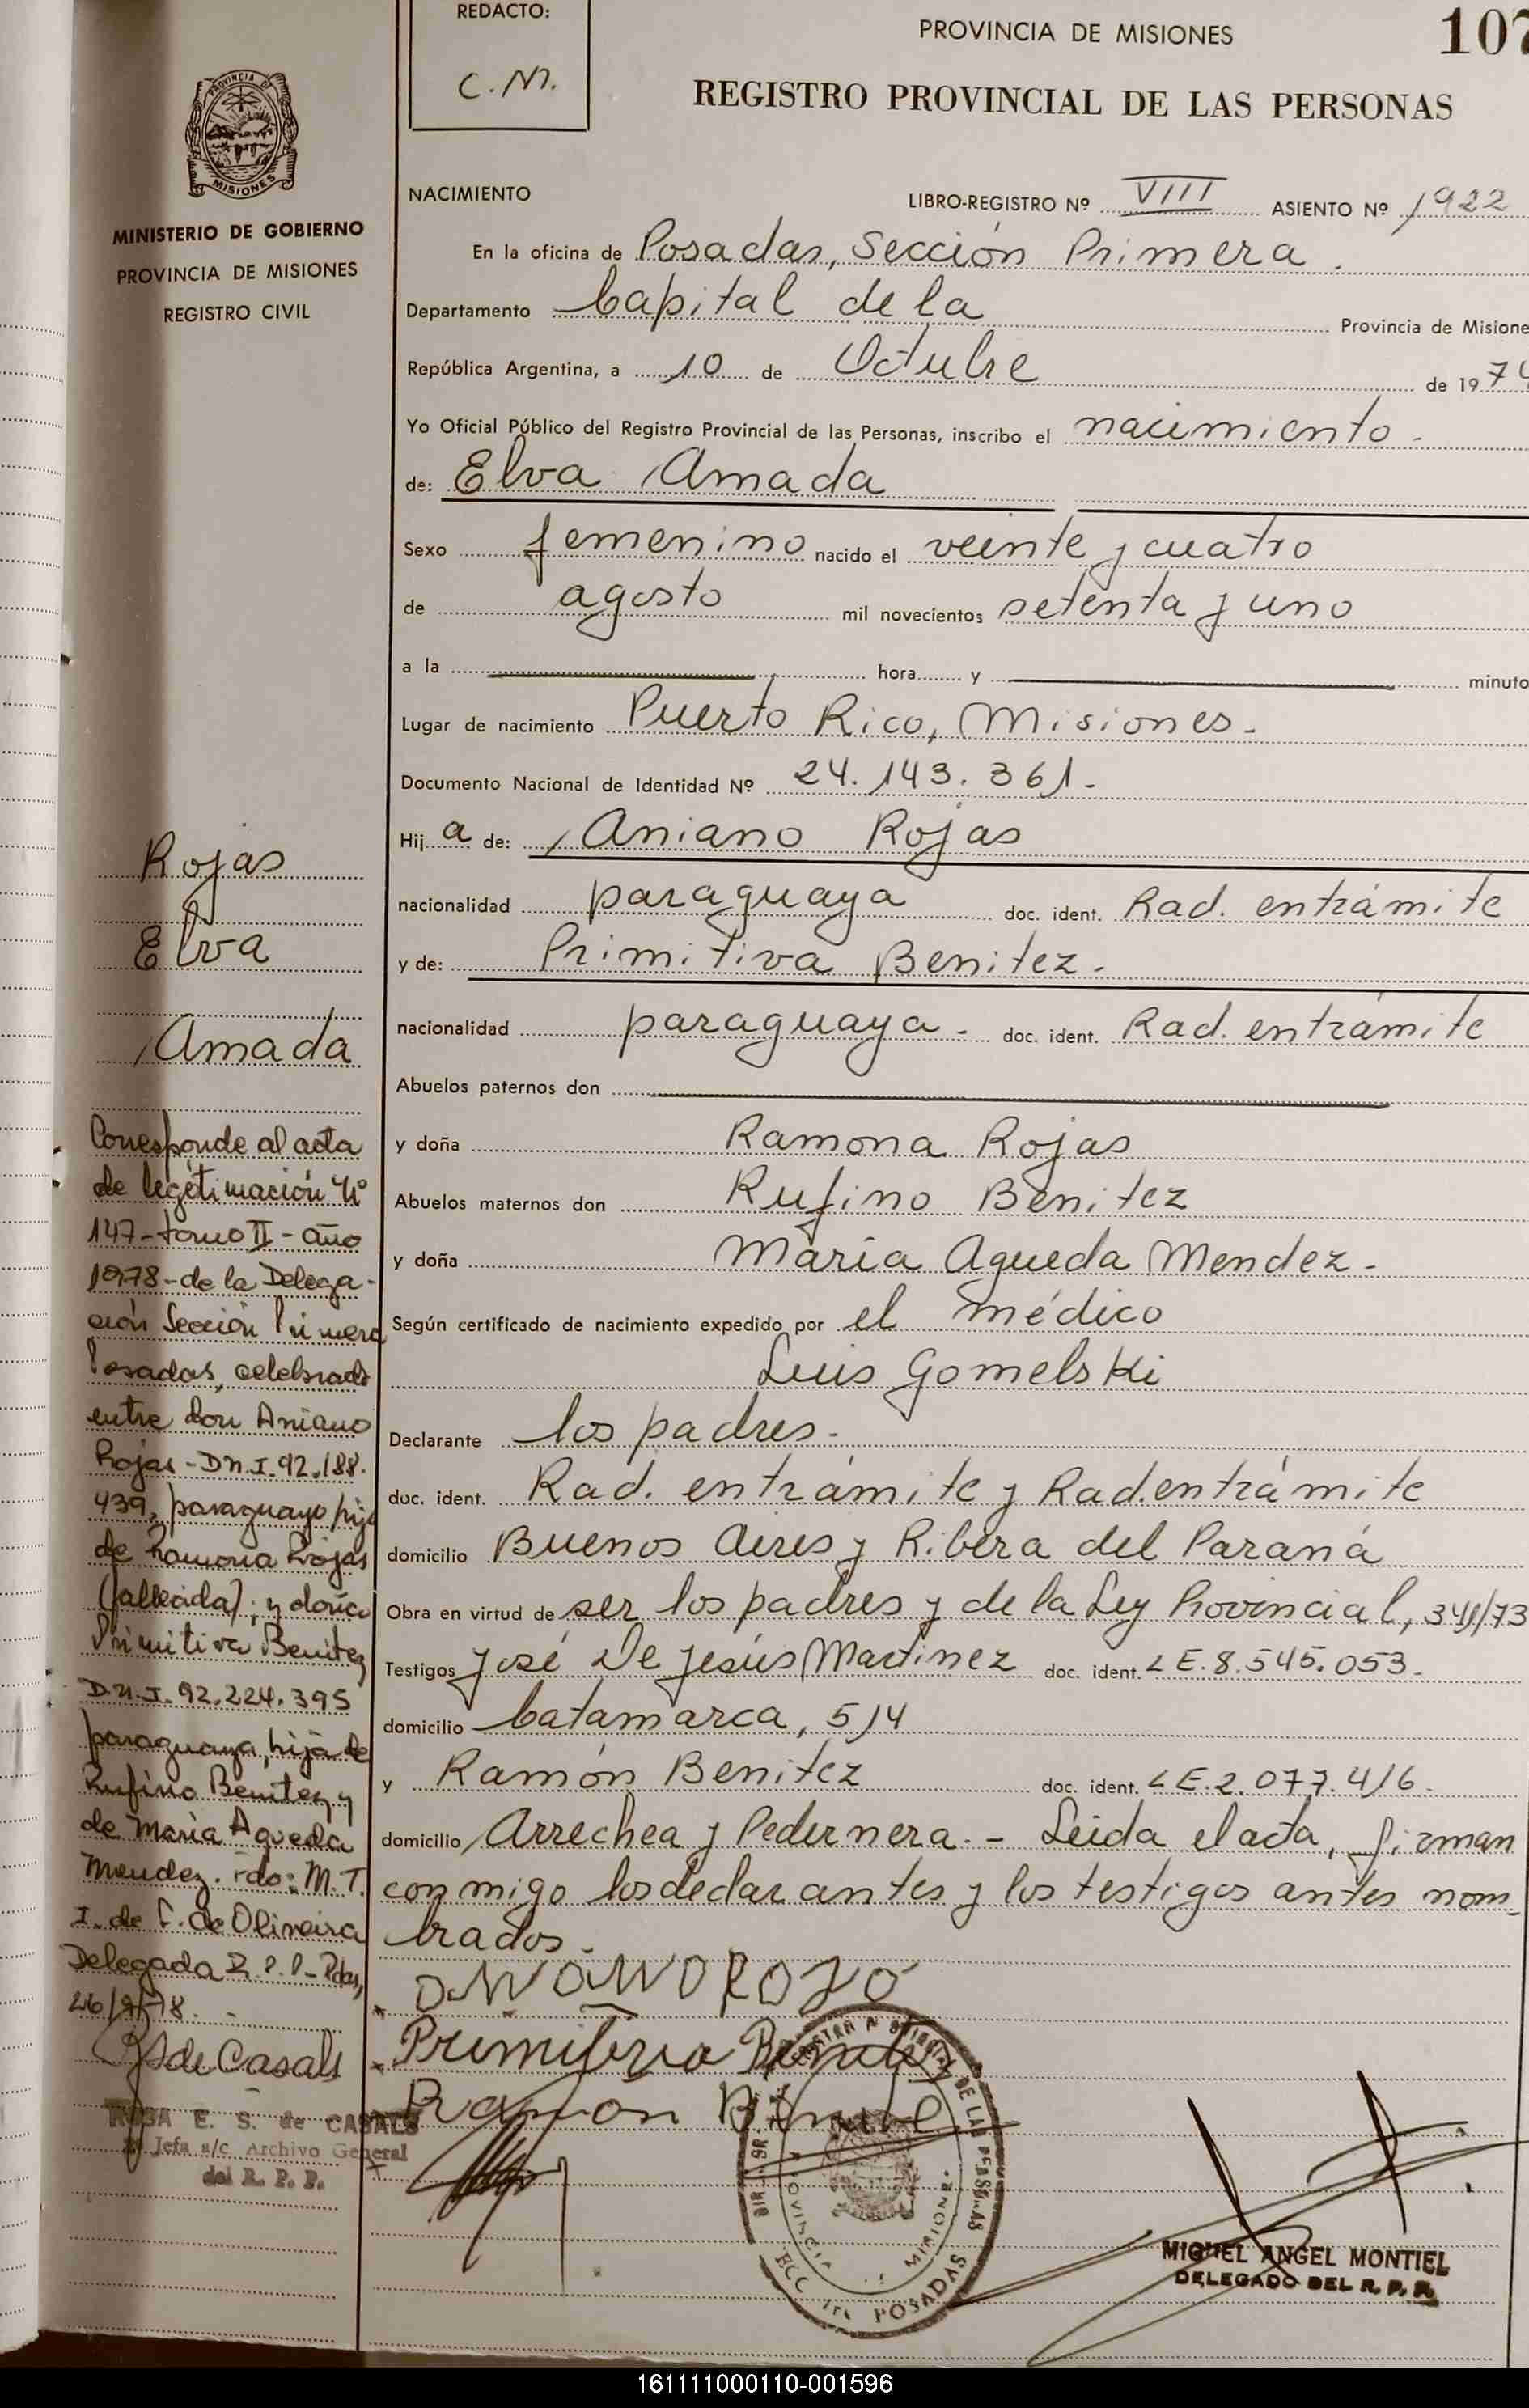 REDACTO:
C. M.
PROVINCIA DE MISIONES
107
REGISTRO PROVINCIAL DE LAS PERSONAS
PROVINCIA D
MISIONES
MINISTERIO DE GOBIERNO
PROVINCIA DE MISIONES
REGISTRO CIVIL
NACIMIENTO
LIBRO-REGISTRO Nº VIII ASIENTO Nº 1922
En la oficina de Posadas, Sección Primera.
Departamento Capital de la Provincia de Misione
República Argentina, a 10 de Octubre de 19 74
Yo Oficial Público del Registro Provincial de las Personas, inscribo el nacimiento.
de: Elva Amada
Sexo femenino nacido el veinte y cuatro
de agosto mil novecientos setenta y uno
a la hora y minuto
Lugar de nacimiento Puerto Rico, Misiones.
Documento Nacional de Identidad Nº 24.143.361.-
Hij a de: Aniano Rojas
nacionalidad paraguaya doc. ident. Rad. entrámite
y de: Primitiva Benitez.
nacionalidad paraguaya - doc. ident. Rad. entrámite
Abuelos paternos don
y doña Ramona Rojas
Abuelos maternos don Rufino Benitez
y doña María Agueda Mendez.-
Según certificado de nacimiento expedido por el médico
Luis Gomelski
Declarante los padres.
doc. ident. Rad. entrámite y Rad. entrámite
domicilio Buenos Aires y Ribera del Paraná
Obra en virtud de ser los padres y de la Ley Provincial,
Testigos José De Jesús Martinez doc. ident. L E. 8.545.053.
domicilio Catamarca, 514
y Ramón Benitez doc. ident. L E. 2.077.416.
domicilio Arrechea y Pedernera. - Leida el acta, firman
conmigo los declarantes y los testigos antes nom-
brados.
Primitiva Benitez
Ramon
Rojas
Elva
Amada
Corresponde al acta
de legitimación Nº
147 - tomo II - año
1978 - de la Delega-
ción Sección Primera
Posadas, celebrado
entre don Aniano
Rojas - D.N.I. 92.188.
439, paraguayo hijo
de Ramona Rojas
(fallecida); y doña
Primitiva Benitez
D.N.I. 92.224.395
paraguaya, hija de
Rufino Benitez y
de María Agueda
Mendez. Fdo: M. T.
I. de F. de Oliveira
Delegada R. P. P. - Pdas,
26/9/78. -
de Casals
ROSA E. S. de CASALS
Jefa a/c Archivo General
del R. P. P.
POSADAS
MIGUEL ANGEL MONTIEL
DELEGADO DEL R. P. P.
161111000110-001596